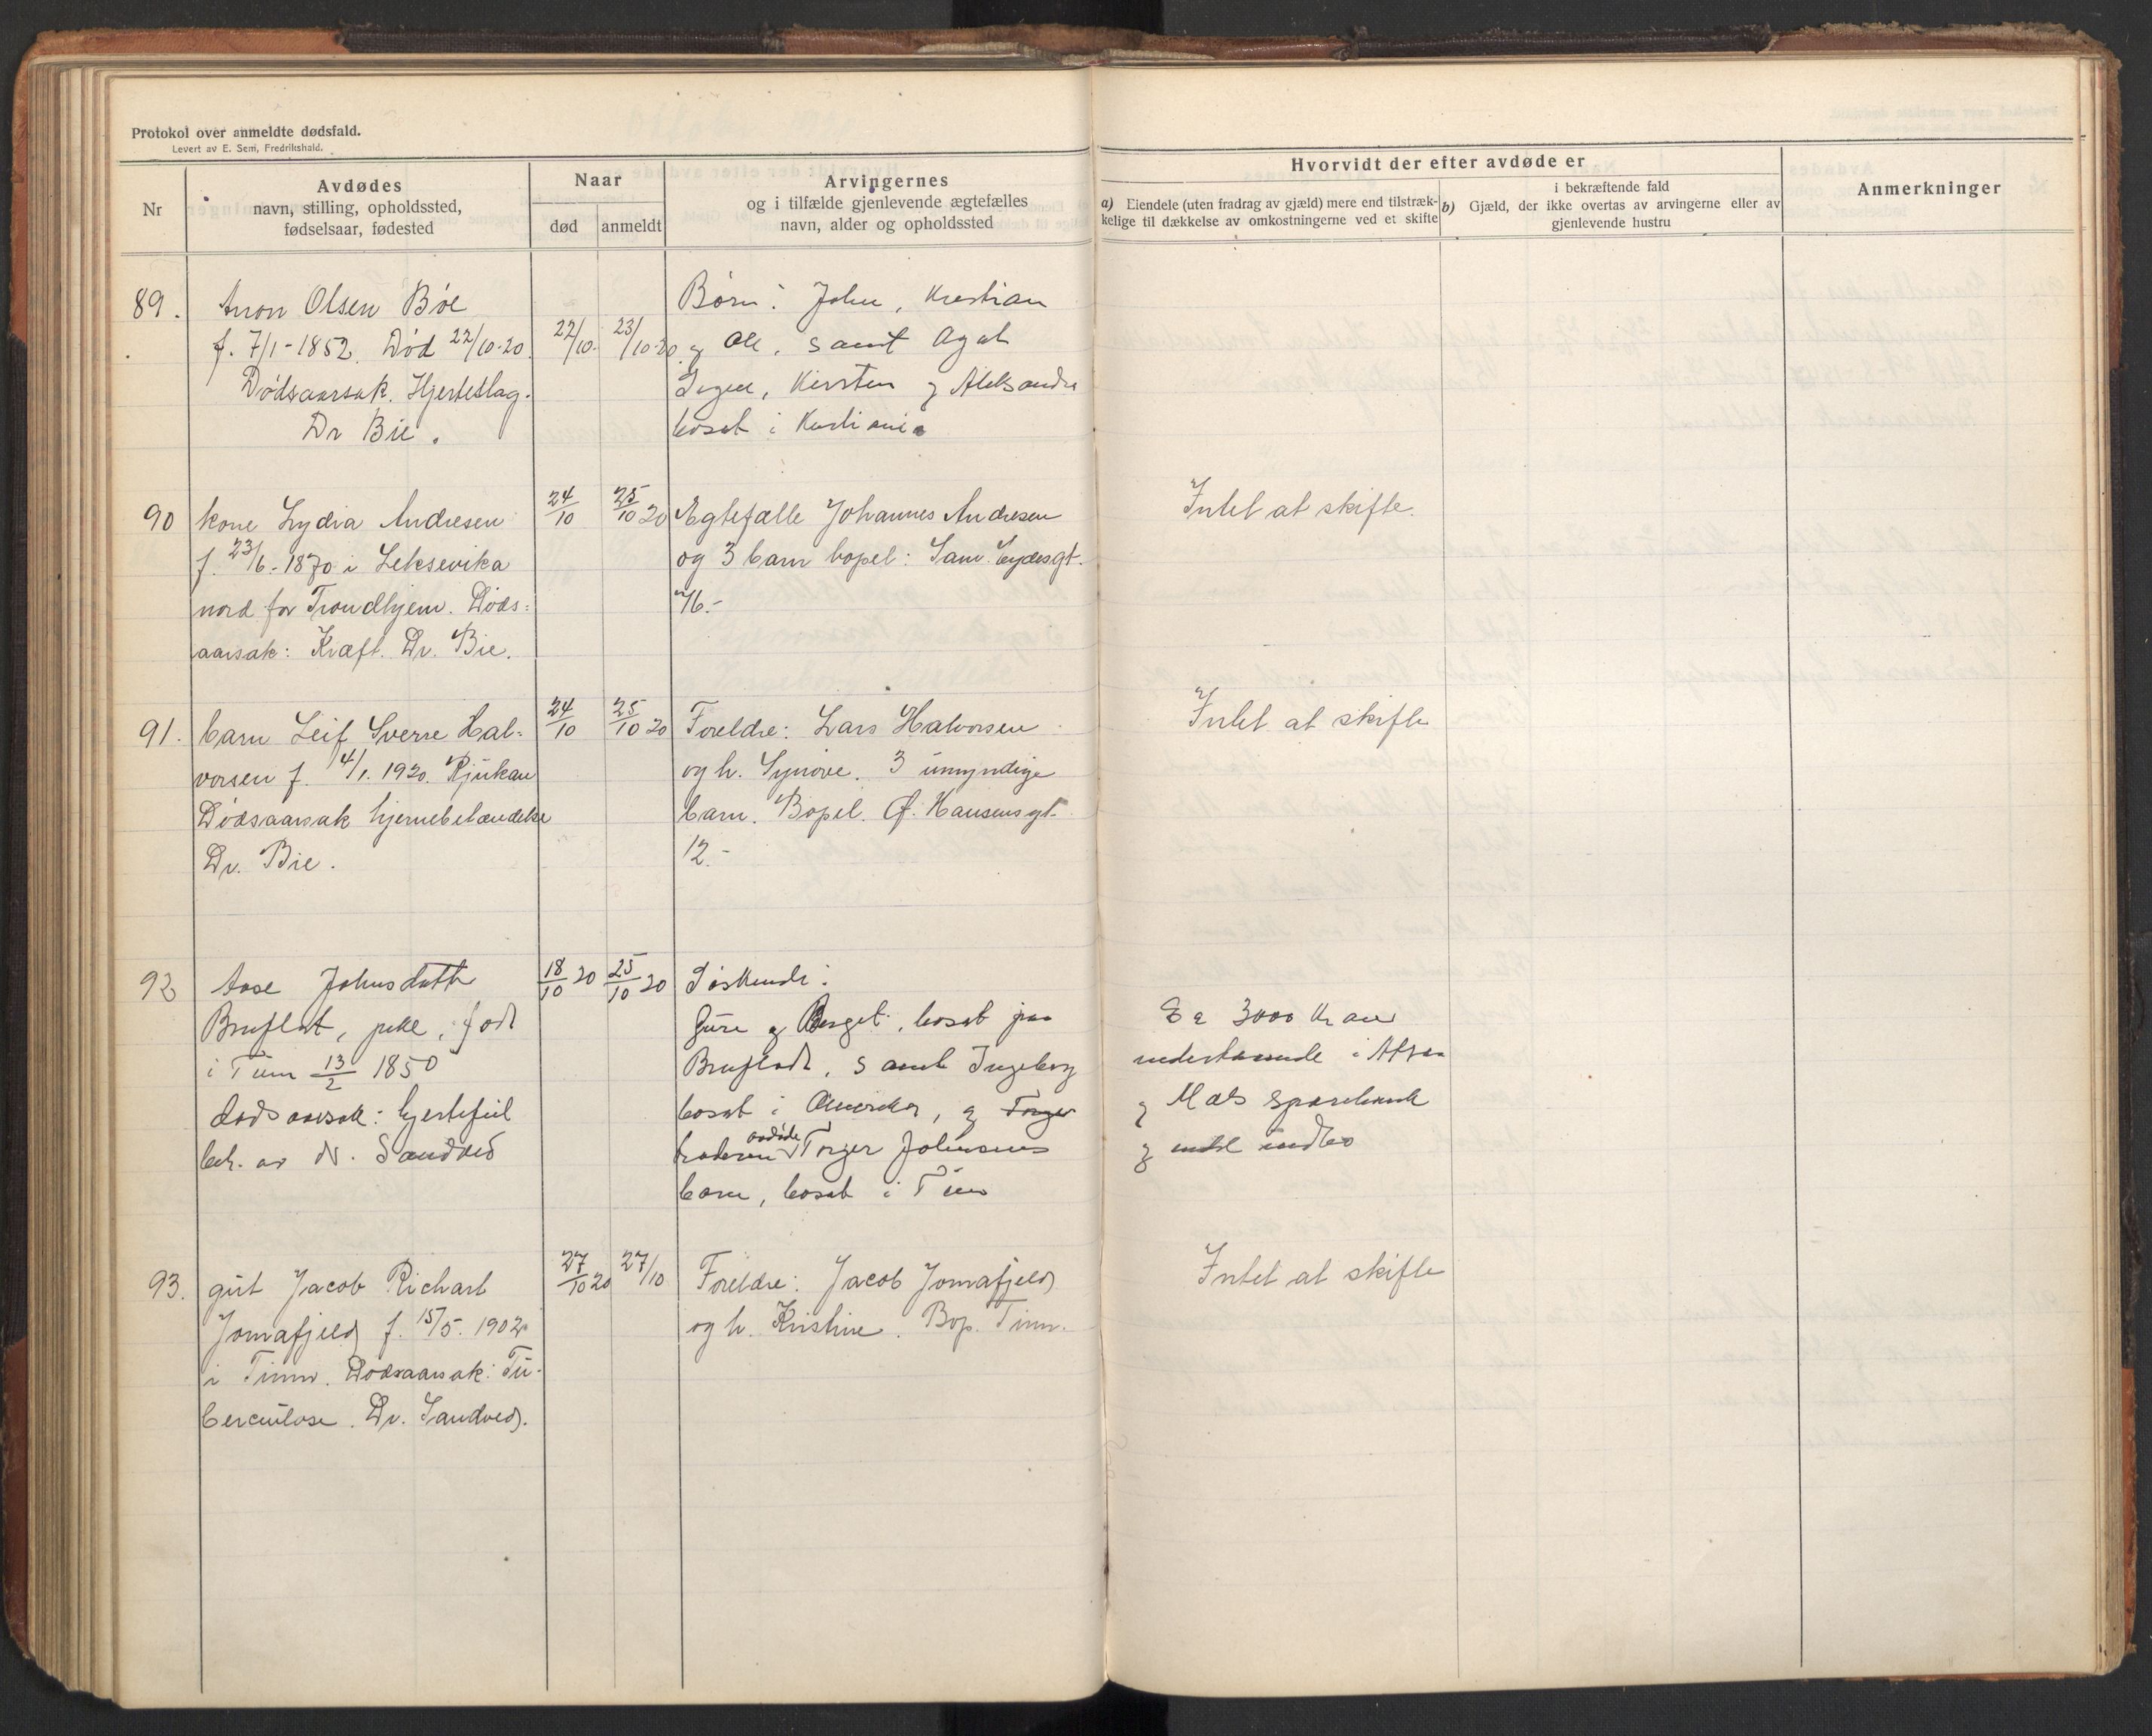 Protokol over anmeldte dødsfald.
Levert av E. Sem, Fredrikshald.
Nr
Avdødes
navn, stilling, opholdssted,
fødselsaar, fødested
Naar
død
anmeldt
Arvingernes
og i tilfælde gjenlevende ægtefælles
navn, alder og opholdssted
Hvorvidt der efter avdøde er
a) Eiendele (uten fradrag av gjæld) mere end tilstræk-
kelige til dækkelse av omkostningerne ved et skifte
i bekræftende fald
b) Gjæld, der ikke overtas av arvingerne eller av
gjenlevende hustru
Anmerkninger
89.
Anon Olsen Bøe
f. 7/1-1852. Død 22/10-20.
Dødsaarsak. Hjerteslag.
Dr Bie.
22/10.
23/10-20
Børn: John, Kristian
og Ole, samt Agat
Inger, Kirsten og Aleksandra
bosat i Kristiania
90
kone Lydia Andresen
f. 23/6-1870 i Leksevika
nord for Trondhjem. Døds-
aarsak: Kræft. Dr. Bie.
24/10
25/10 20
Egtefælle Johannes Andresen
og 3 barn bopel: Sam. Eydesgt.
76.-
Intet at skifte.
91.
barn Leif Sverre Hal-
vorsen f. 14/1. 1920. Rjukan
Dødsaarsak hjernebetændelse
Dr. Bie.
24/10
25/10 20
Foreldre: Lars Halvorsen
og h. Synøve. 3 umyndige
barn. Bopel. Hansensgt.
12.-
Intet at skifte
92
Aase Johnsdatter
Bruflat, pike, født
i Tinn 13/2 1850
dødsaarsak: hjertefeil
beh. av dr. Sandved
18/10 20
25/10 20
Søskende:
Gure og Berget, bosat paa
Bruflat, samt Ingeborg
bosat i Amerika, og Torger
broderen avdøde Torger Johnsens
barn, bosat i Tinn
Ca 3000 Kr
indestaaende i Atraa
og Mæls sparebank
og indbo
93.
gut Jacob Richart
Jomafjeld f. 15/5. 1902
i Tinn. Dødsaarsak: Tu-
berculose. Dr. Sandved.
27/10 20
27/10
Foreldre: Jacob Jomafjeld
og h. Kristine. Bop. Tinn.
Intet at skifte